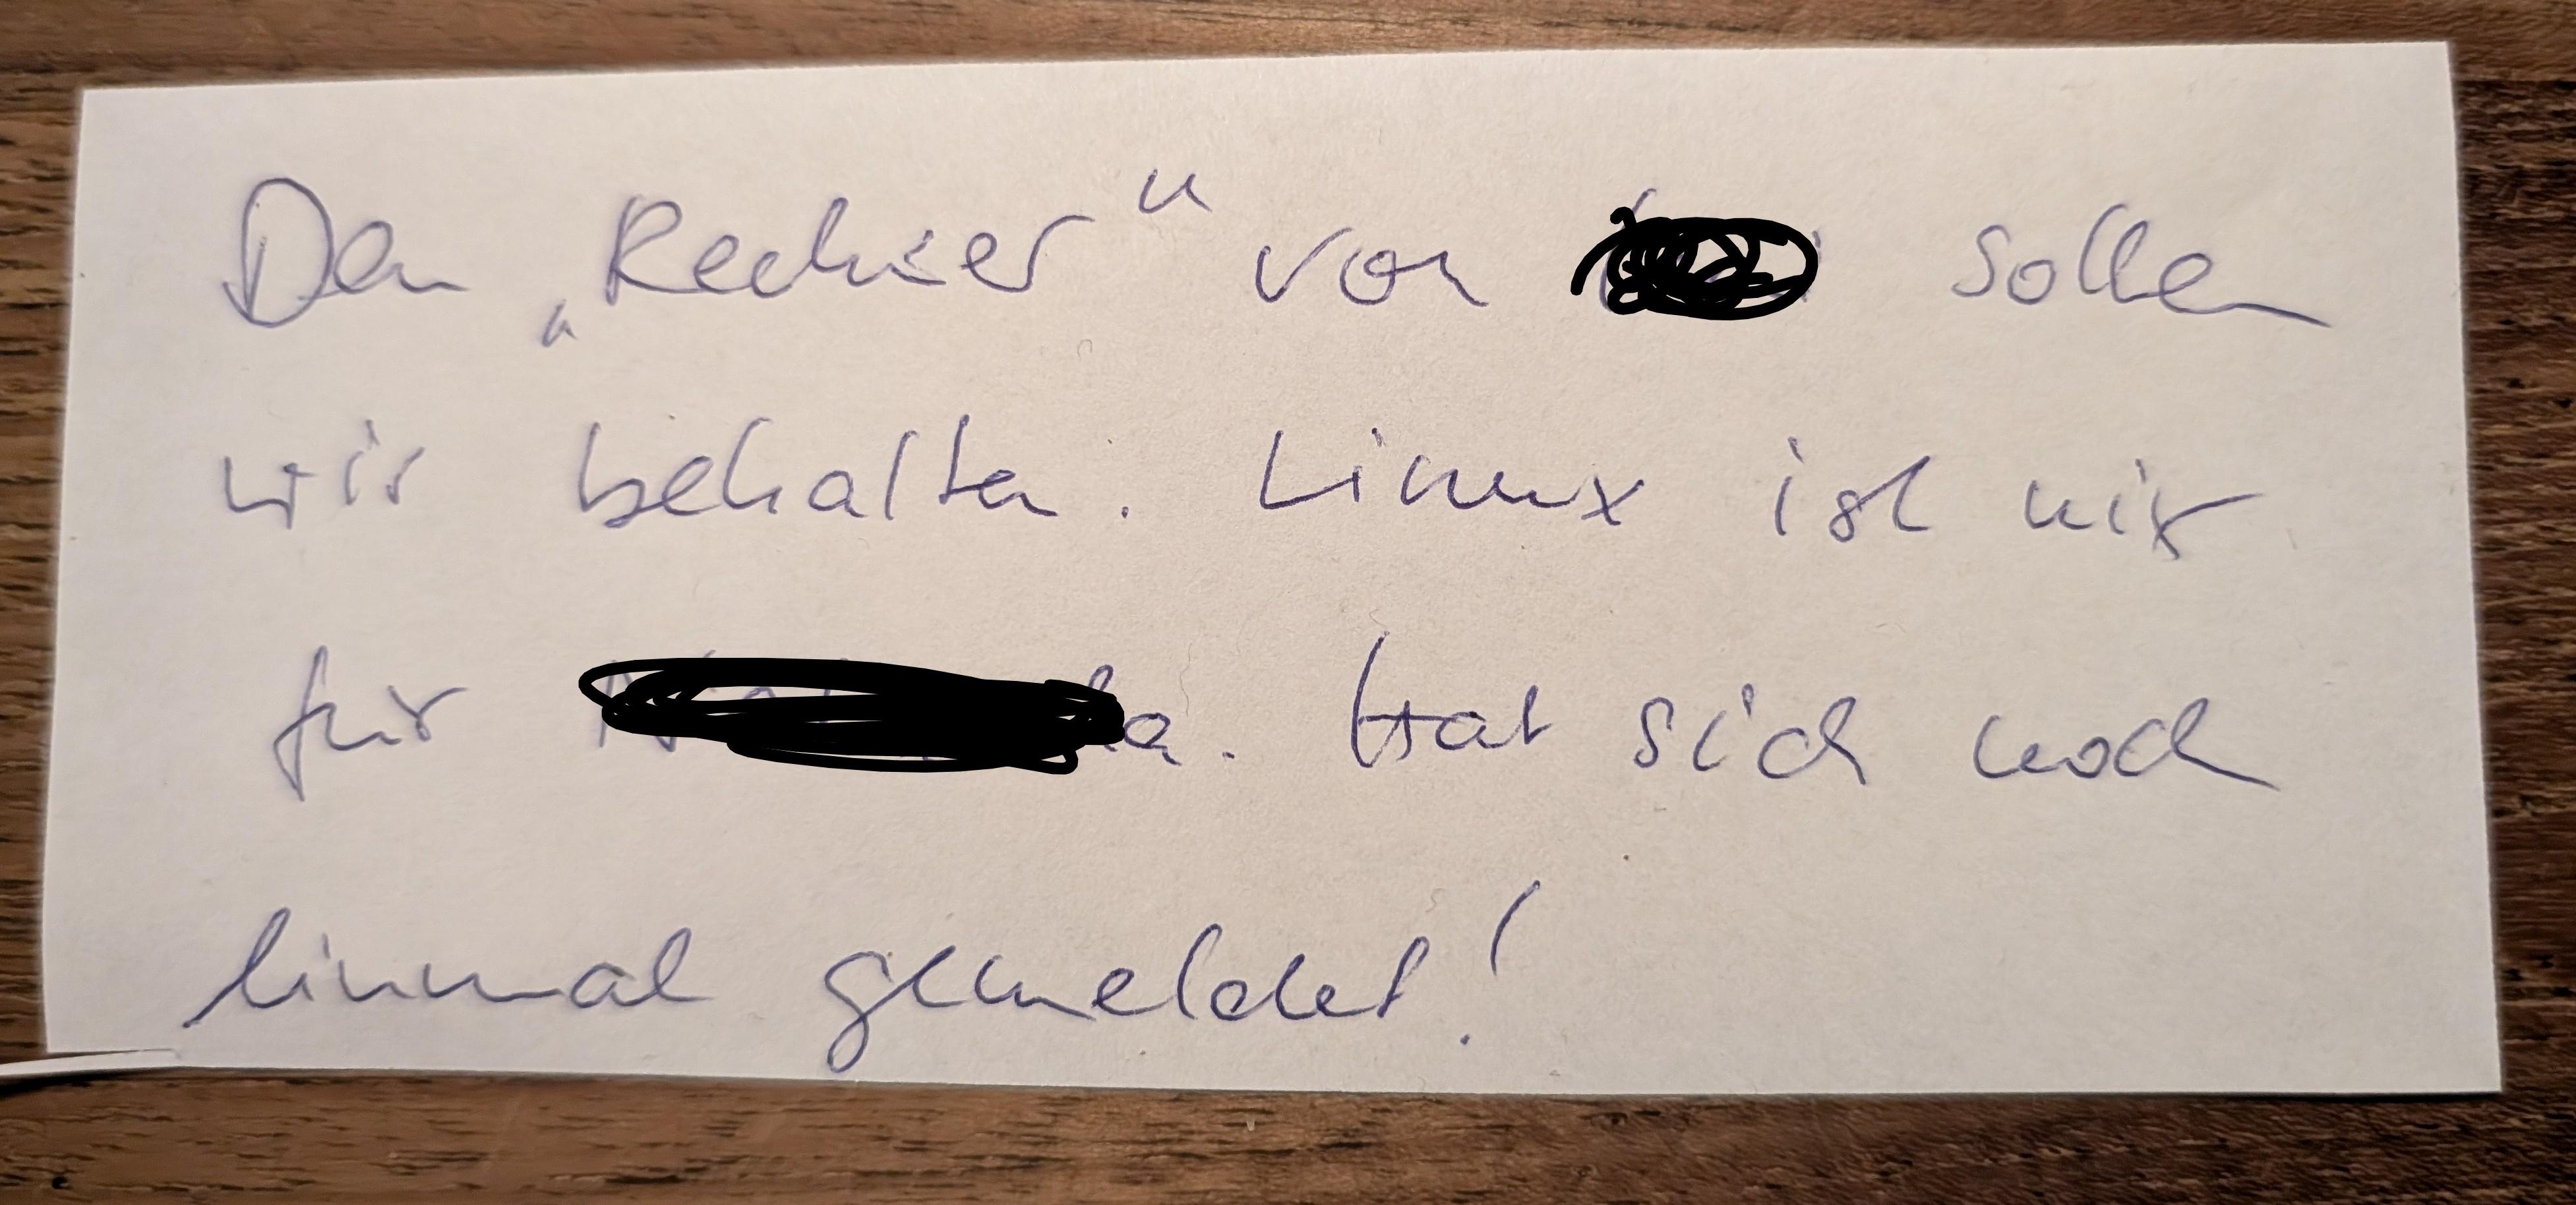 Den „Rechner“ von sollen
wir behalten. Linux ist nix
für . Hat sich noch
einmal gemeldet!